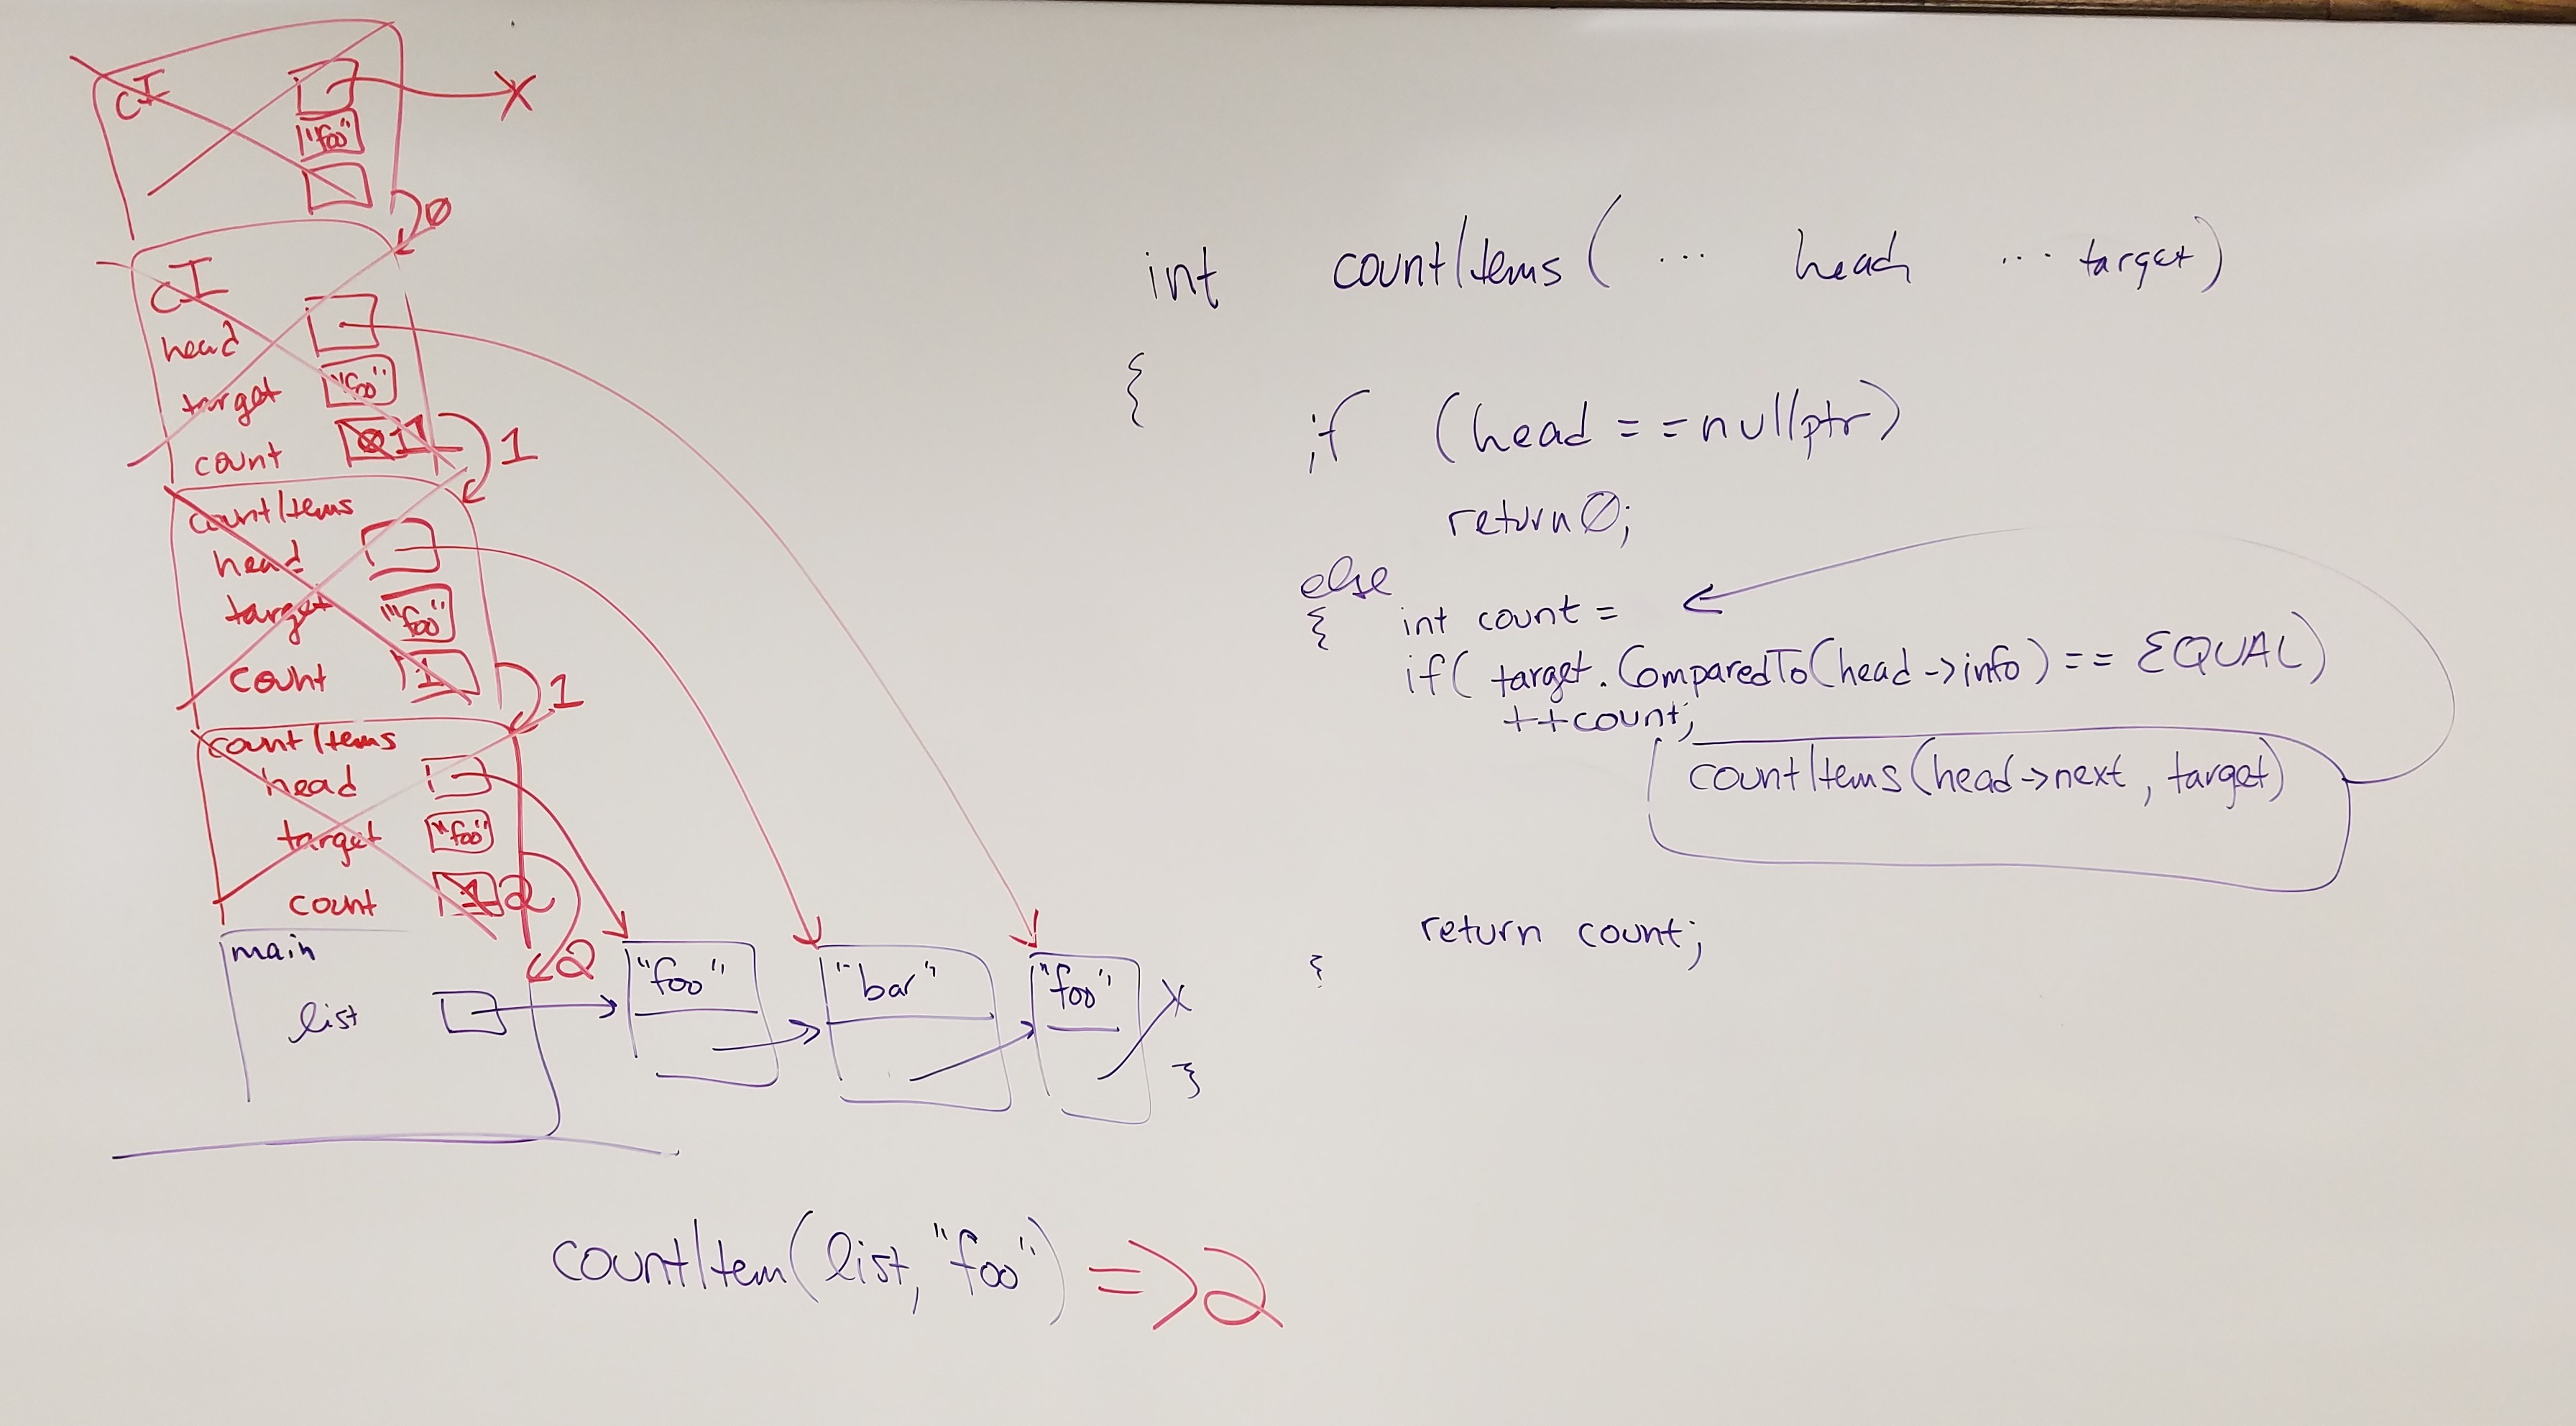 CI
"foo"
0
CI
head
target "foo"
count 0 1
1
countItems
head
target "foo"
count 1
1
countItems
head
target "foo"
count 1 2
2
main
list
"foo" "bar" "foo"
countItem(list, "foo") => 2
int countItems( ... head ... target)
{
if (head == nullptr)
return 0;
else
{ int count =
if( target.ComparedTo(head->info) == EQUAL)
++count;
countItems(head->next, target)
return count;
}
}